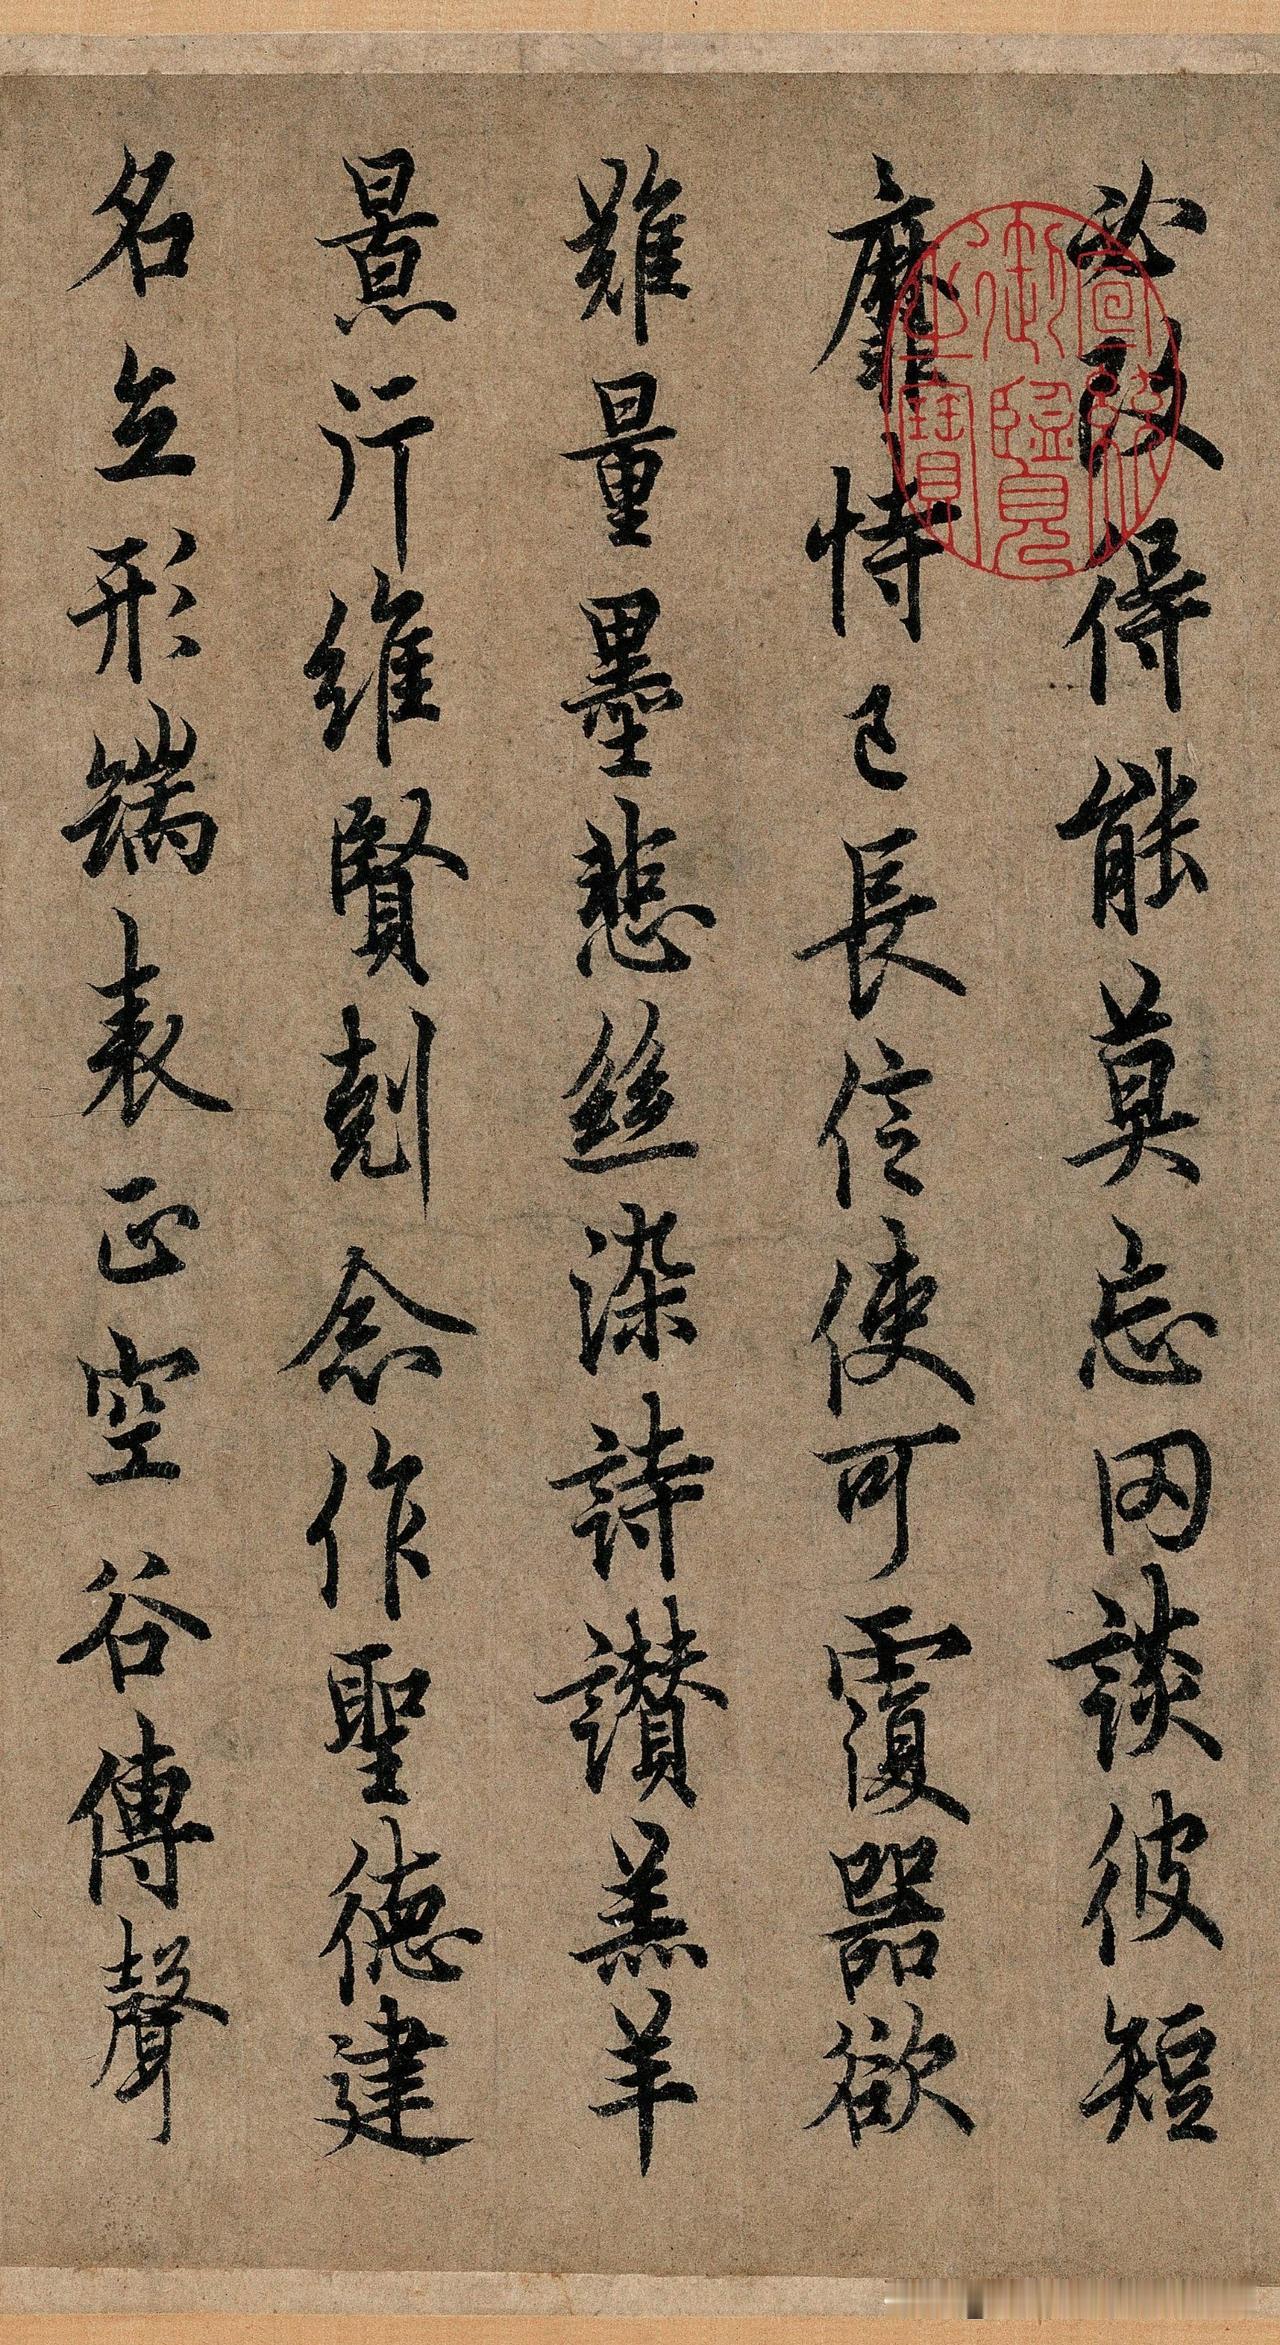 必改得能莫忘罔談彼短
靡恃己長信使可覆器欲
難量墨悲絲染詩讚羔羊
景行維賢剋念作聖德建
名立形端表正空谷傳聲
宣統御覽之寶